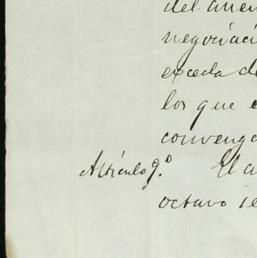 del
negociaci
exceda de
los que e
convenga
Artículo 9.º El a
octavo